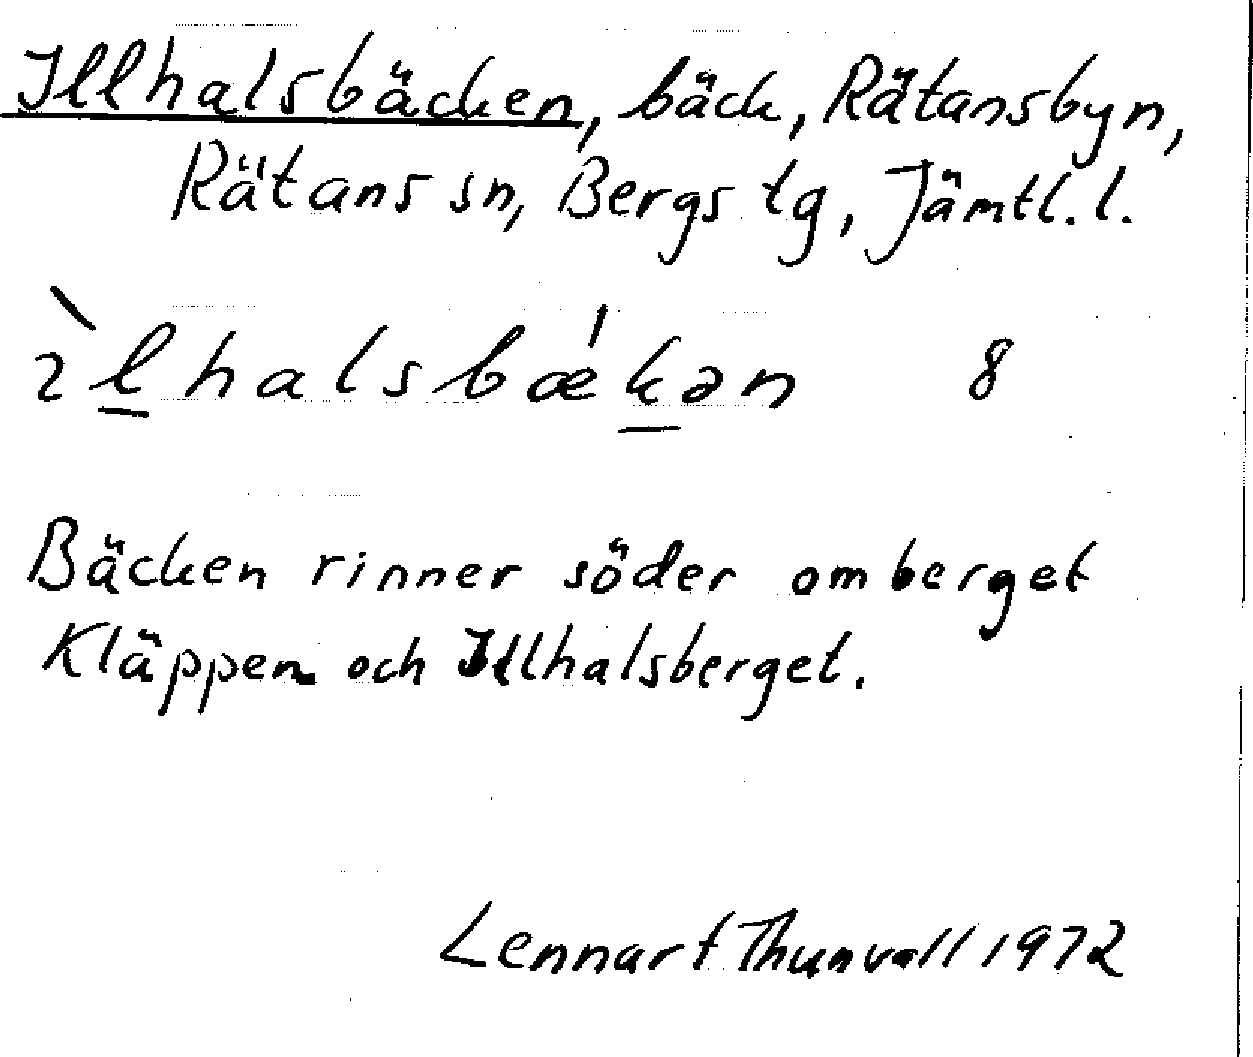 Illhalsbäcken, bäck, Rätansbyn,
Rätans sn, Bergs tg, Jämtl. l.
ìl̲halsbǽk̲ən 8
Bäcken rinner söder om berget
Kläppen och Illhalsberget.
Lennart Thunvall 1972